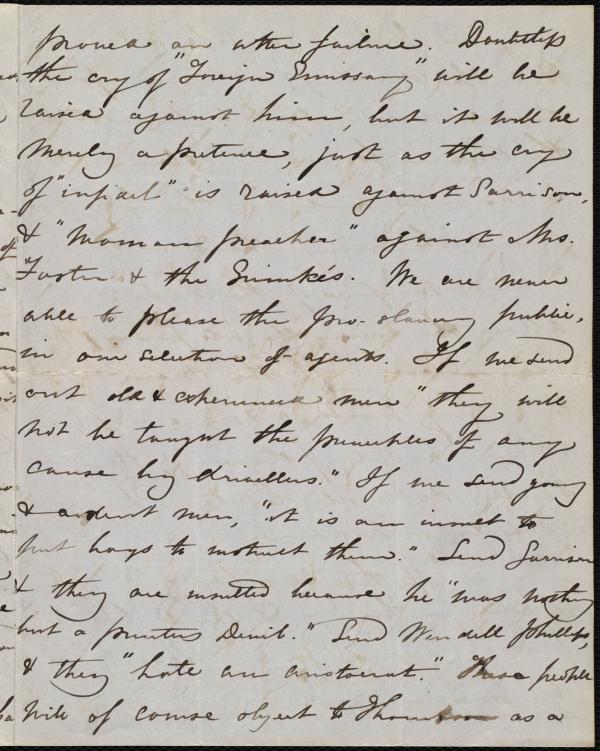 proved an utter failure. Doubtless
the cry of "Foreign Emissary" will be
raised against him, but it will be
merely a pretence, just as the cry
of "infidel" is raised against Garrison,
& "Woman preacher" against Mrs.
Foster & the Grimkés. We are never
able to please the pro-slavery public,
in our selection of agents. If we send
out old & experienced men "they will
not be taught the principles of any
cause by drivellers." If we send young
& ardent men, "it is an insult to
put boys to instruct them." Send Garrison
& they are insulted because he "was nothing
but a printers Devil." Send Wendell Phillips,
& they "hate an aristocrat." These people
will of course object to Thompson as a